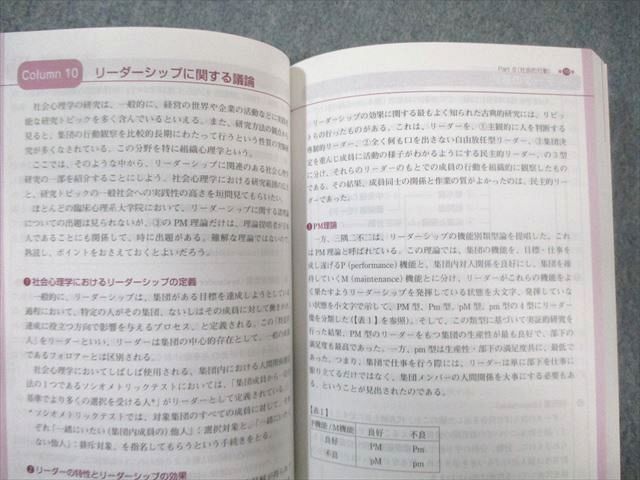 Column 10 リーダーシップに関する議論
社会心理学の研究は、一般的に、経営の世界や企業の活動などに実践的
な研究トピックを多く含んでいるといえる。また、研究方法の観点から
見ると、集団の行動観察を比較的長期にわたって行うという性質の実際
究が多くなされている。この分野を特に組織心理学という。
ここでは、そのような中から、リーダーシップに関連のある社会心理学
研究の一部を紹介することにしよう。社会心理学における研究範囲の広さ
と、研究トピックの一般社会への実践性の高さを垣間見てもらいたい。
ほとんどの臨床心理系大学院において、リーダーシップに関する諸理論
についての出題は見られないが、③のPM理論だけは、理論提唱者が日本
人であることにも関係して、時に出題がある。難解な理論ではないので
熟読し、ポイントをおさえておくとよいだろう。
❶社会心理学におけるリーダーシップの定義
一般的に、リーダーシップは、集団がある目標を達成しようとしている
過程において、特定の人がその集団、ないしはその成員に対して働きかけ
達成に役立つ方向で影響を与えるプロセス、と定義される。この「特定の
人」をリーダーといい、リーダーは集団の中心的存在として、一般の成員
であるフォロアーとは区別される。
社会心理学においてしばしば使用される、集団内における人間関係測定
法の1つであるソシオメトリックテストにおいては、「集団成員から一定の
基準でより多くの選択を受ける人*」がリーダーと定義されている。
*ソシオメトリックテストでは、対象集団のすべての成員に対して、それ
ぞれ「一緒にいたい(集団内成員の)他人」：選択対象と、「一緒にい
ない他人」：排斥対象、を指名してもらうという手続きをとる。
❷リーダーの特性とリーダーシップの効果
Part 6〔社会的行動〕
リーダーシップの効果に関する最もよく知られた古典的研究には、リピッ
らの行ったものがある。これは、リーダーを、①主観的に人を判断する
専制的リーダー、②全く何も口を出さない自由放任型リーダー、③集団決
定を重んじ成員に活動の様子がわかるようにする民主的リーダー、の3型
に分け、それらのリーダーのもとでの成員の行動を組織的に観察したもの
である。その結果、成員同士の関係と作業の質がよかったのは、民主的リー
ダーであった。
❸PM理論
一方、三隅二不二は、リーダーシップの機能別類型論を提唱した。これ
はPM理論と呼ばれている。この理論では、集団の機能を、目標・仕事を
成し遂げるP (performance) 機能と、集団内対人関係を良好にし、集団を維
持していくM (maintenance) 機能とに分け、リーダーがこれらの機能をよ
く果たすようリーダーシップを発揮している状態を大文字、発揮していな
い状態を小文字で示して、PM型、Pm型、pM型、pm型の4型にリーダー
を分類した(【表1】を参照)。そして、この類型に基づいて実証的研究を
行った結果、PM型のリーダーをもつ集団の生産性が最も良好で、部下の
満足度も最高であった。一方、pm型は生産性・部下の満足度共に、最低で
あった。つまり、集団で仕事を行う際には、リーダーは単に部下を仕事に
駆り立てるだけではなく、集団メンバーの人間関係を大事にする必要もあ
る、ということが見出されたのである。
【表1】
P機能/M機能 良好 不良
良好 PM Pm
不良 pM pm